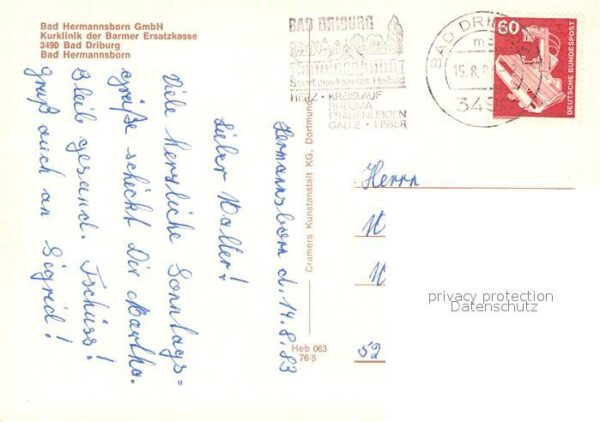 Bad Hermannsborn GmbH
Kurklinik der Barmer Ersatzkasse
3490 Bad Driburg
Bad Hermannsborn
Hermannsborn d. 14.8.83
Lieber Walter!
Viele herzliche Sonntags=
grüße schickt Dir Martha.
Bleib gesund. Tschüss!
Gruß auch an Sigrid!
Cramers Kunstanstalt KG, Dortmund
Heb 063
76 5
BAD DRIBURG
Staatl. anerkanntes Heilbad
HERZ • KREISLAUF
RHEUMA
FRAUENLEIDEN
GALLE • LEBER
BAD DRIBURG
15.8.
349
60
DEUTSCHE BUNDESPOST
Herrn
W
W
52
privacy protection
Datenschutz